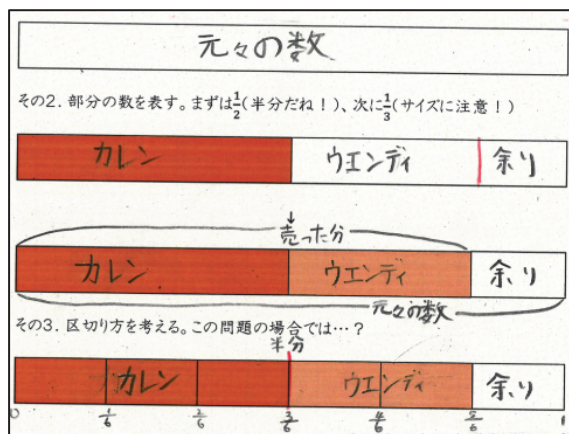 元々の数
その2. 部分の数を表す。まずは1/2(半分だね！)、次に1/3(サイズに注意！)
カレン ウエンディ 余り
売った分
カレン ウエンディ 余り
元々の数
その3. 区切り方を考える。この問題の場合では…？
半分
カレン ウエンディ 余り
0 1/6 2/6 3/6 4/6 5/6 1